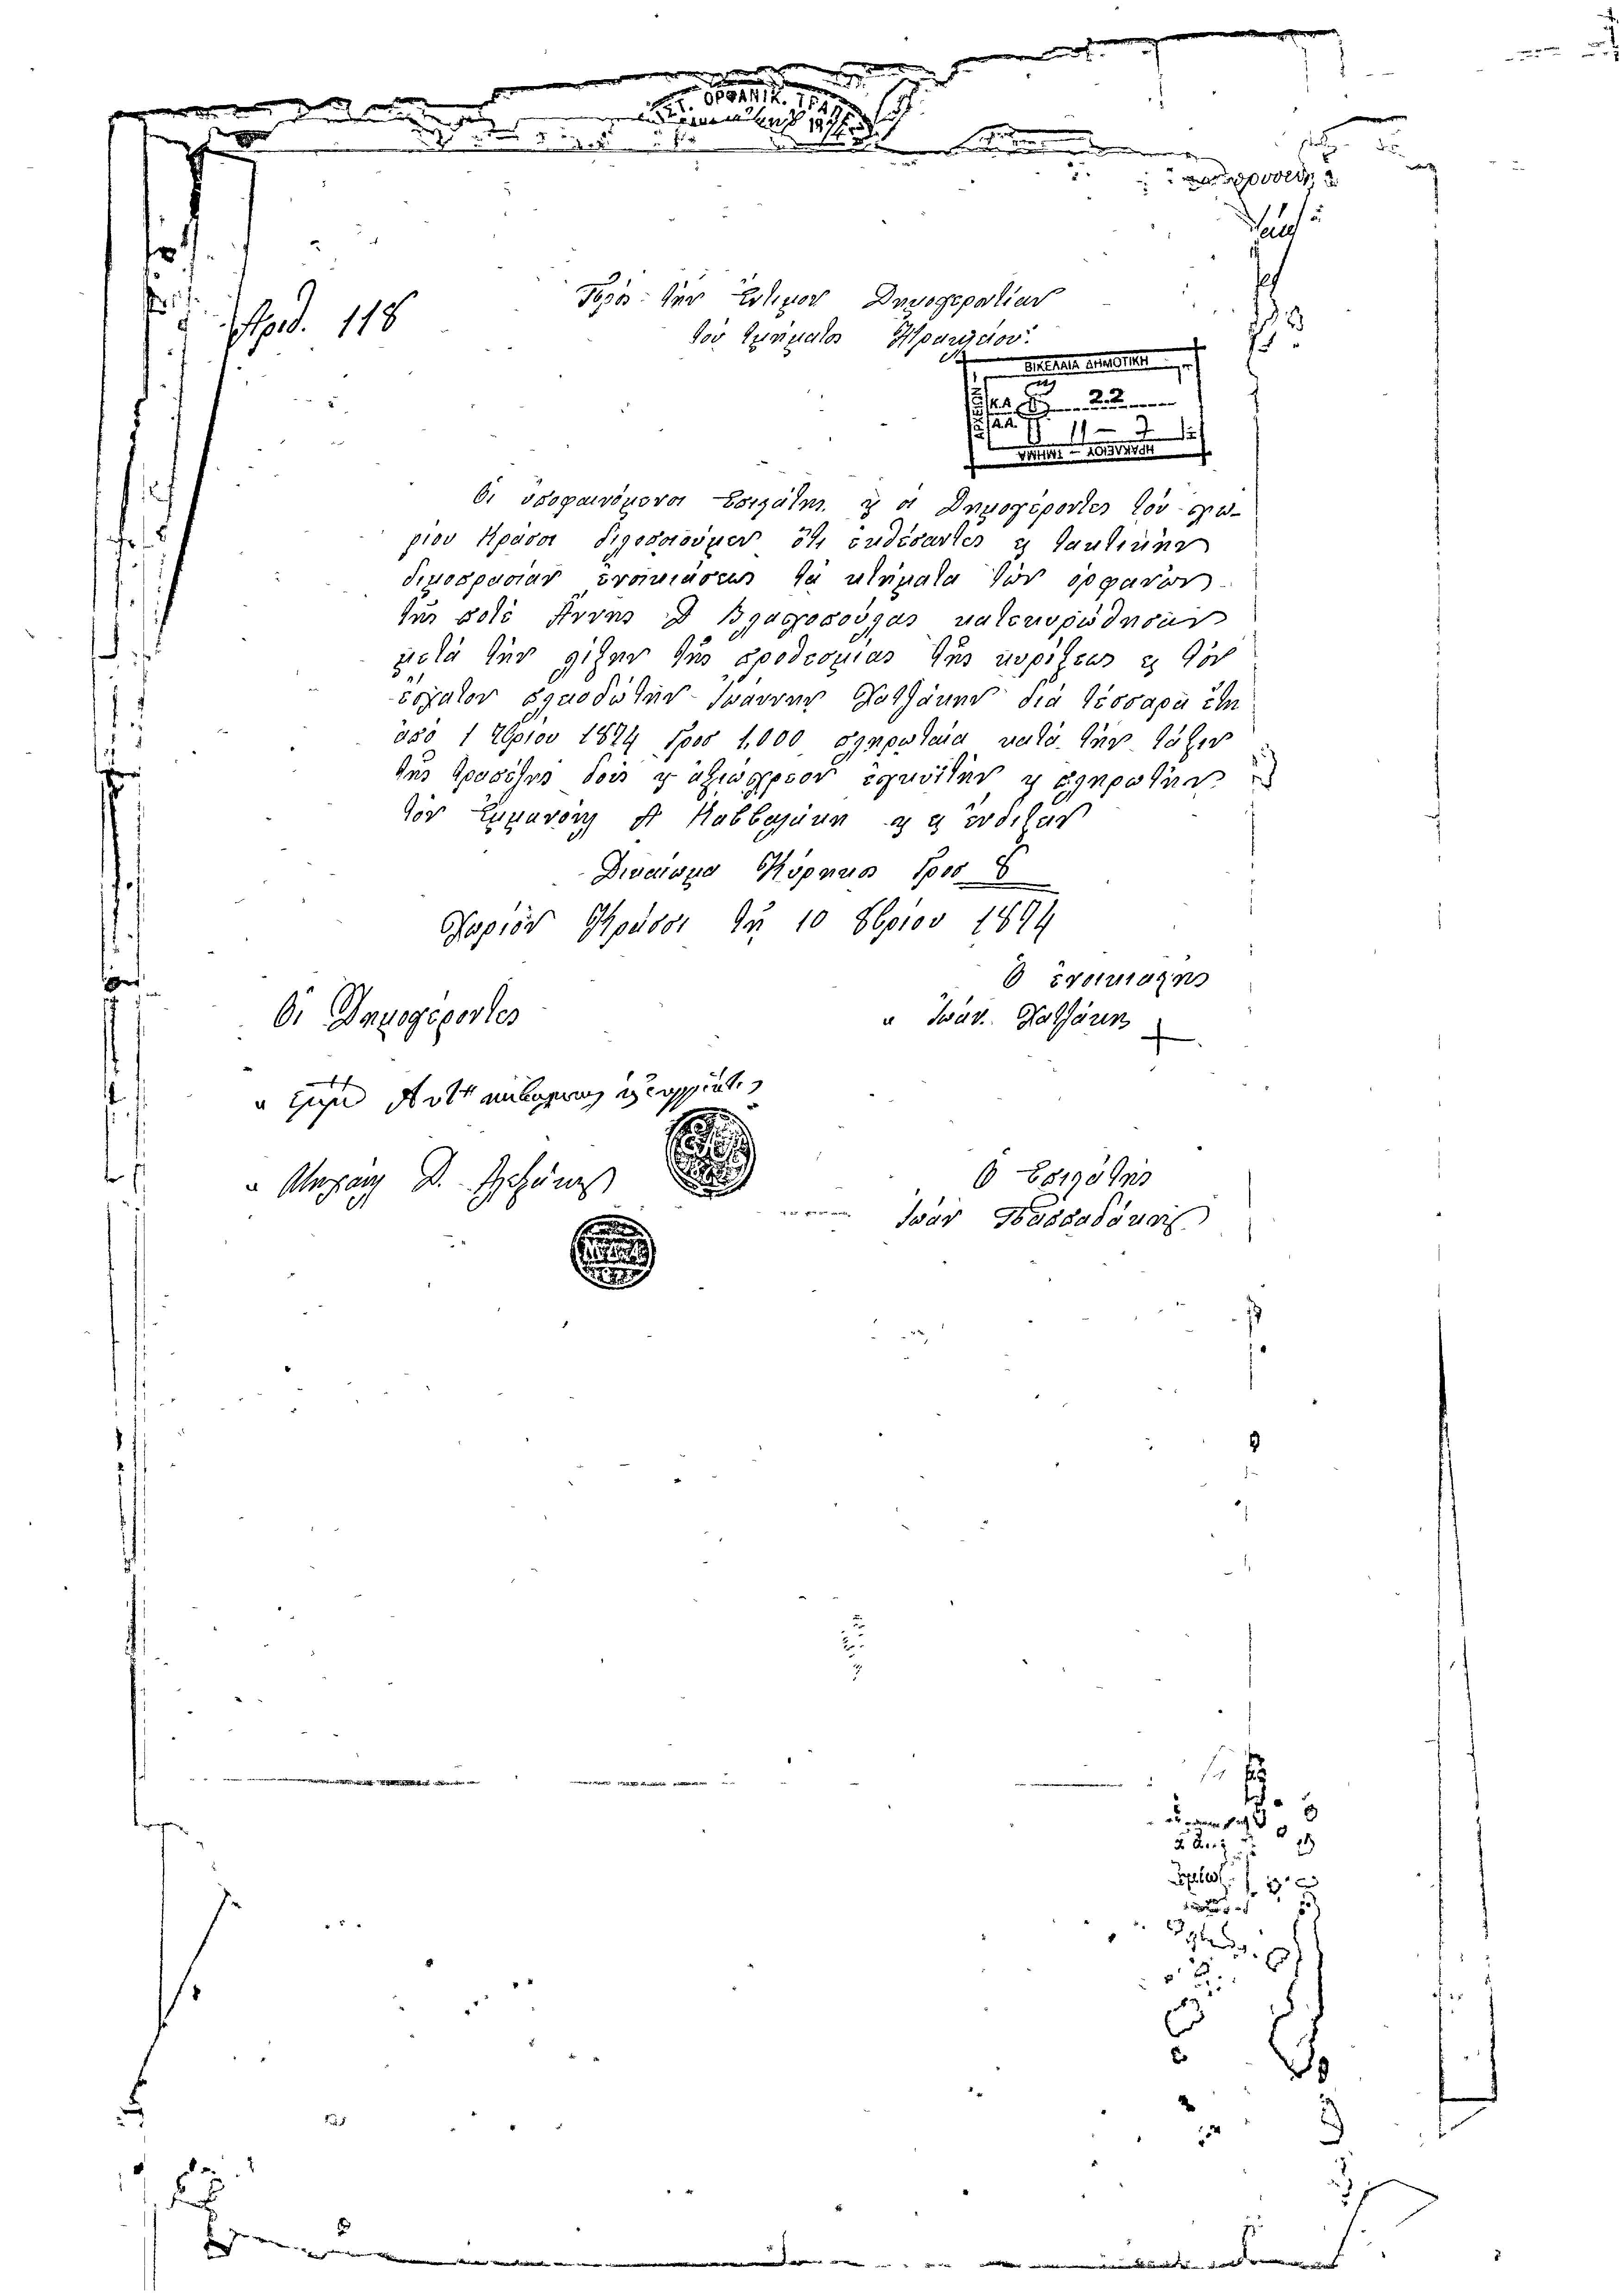 ΟΡΦΑΝΙΚ. ΤΡΑΠ
Ἀριθ. 118
Πρὸς τὴν Ἔντιμον Δημογεροντίαν
τοῦ τμήματος Ἡρακλείου.
ΒΙΚΕΛΑΙΑ ΔΗΜΟΤΙΚΗ
ΑΡΧΕΙΟΝ
Κ.Α 22
Α.Α. 11-7
ΗΡΑΚΛΕΙΟΥ - ΤΜΗΜΑ
Οἱ ὑποφαινόμενοι Ἐπιλάτης κ οἱ Δημογέροντες τοῦ χω-
ρίου Κράσι διλοποιοῦμεν ὅτι ἐκθέσαντες ες τακτικὴν
διμοπρασίαν ἐνοικιάσεως τὰ κτήματα τῶν ὀρφανῶν
τῆς ποτὲ Ἄννης Δ Βλαχοπούλας κατεκυρώθησαν
μετὰ τὴν λῖξην τῆς προθεσμίας τῆς κυρίξεως ες τὸν
ἔσχατον πλειοδώτην Ἰωάννην Χατζάκην διὰ τέσσαρα ἔτη
ἀπὸ 1 7βρίου 1874 Γροσ 1,000 πληρωταία κατὰ τὴν τάξιν
τῆς τραπέζης δοὺς κ ἀξιώχρεον ἐγκυϊτὴν κ πληρωτὴν
τὸν Ἐμμανουὴλ Α Καββαλάκη κ ες ἔνδιξαν
Δικαίωμα Κύρηκος Γροσ 8
Χωρίον Κράσι τῇ 10 8βρίου 1874
Ὁ ἐνοικιαστὴς
Ἰωάν. Χατζάκης +
Οἱ Δημογέροντες
Μηχαὴλ Δ.
Ὁ Ἐπιλάτης
Ἰωάν